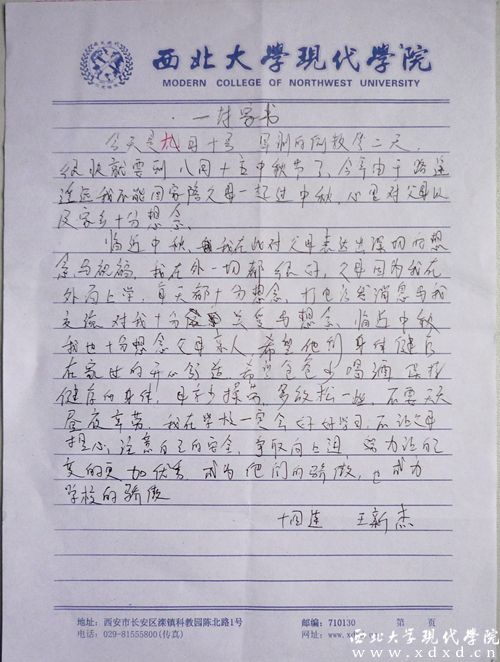 西北大學現代學院
MODERN COLLEGE OF NORTHWEST UNIVERSITY
一封家书
今天是九月十号 军训的倒数第二天,
很快就要到八月十五中秋节了,今年由于路途
遥远我不能回家陪父母一起过中秋,心里对父母以
及家乡十分想念。
临近中秋,我在此对父母表达出深切的想
念与祝福,我在外一切都很好,父母因为我在
外面上学,每天都十分想念,打电话发消息与我
交流 对我十分 关爱与想念,临近中秋
我也十分想念父母亲人,希望他们身体健康
在家女的开心 希望爸爸少喝酒 保持
健康的身体,母亲少操劳,多放松一些,不要天天
昼夜辛劳,我在学校一定会好好学习,不让父母
担心,注意自己的安全,争取向上进,努力让自己
变的更加优秀 成为他们的骄傲, 成为
学校的骄傲
十四连 王新杰
地址:西安市长安区滦镇科教园陈北路1号 邮编:710130 第 页
电话:029-81555800(传真) 网址:www.xdxd.cn
西北大学现代学院
www.xdxd.cn